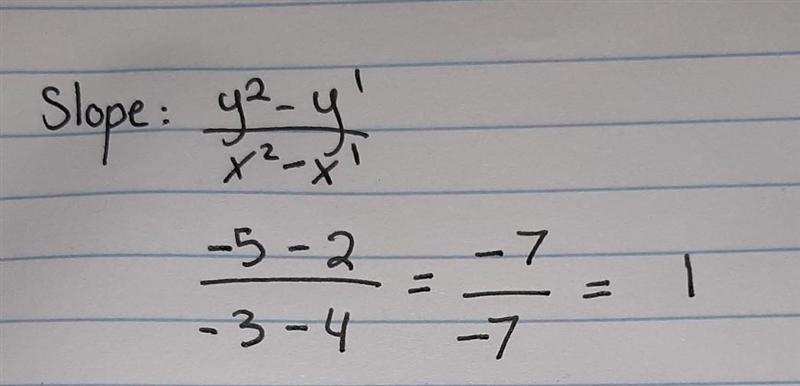 Slope: y² - y¹
x² - x¹
-5 - 2 = -7 = 1
-3 - 4 -7